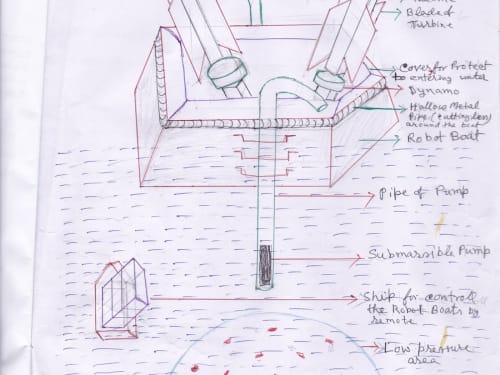 Blade of
Turbine
Cover for Protect
to entering water
Dynamo
Hollow Metal
around the boat
Robot Boat
Pipe of Pump
Submarsible Pump
Ship for control
the Robot Boats by
remote
Low pressure
area